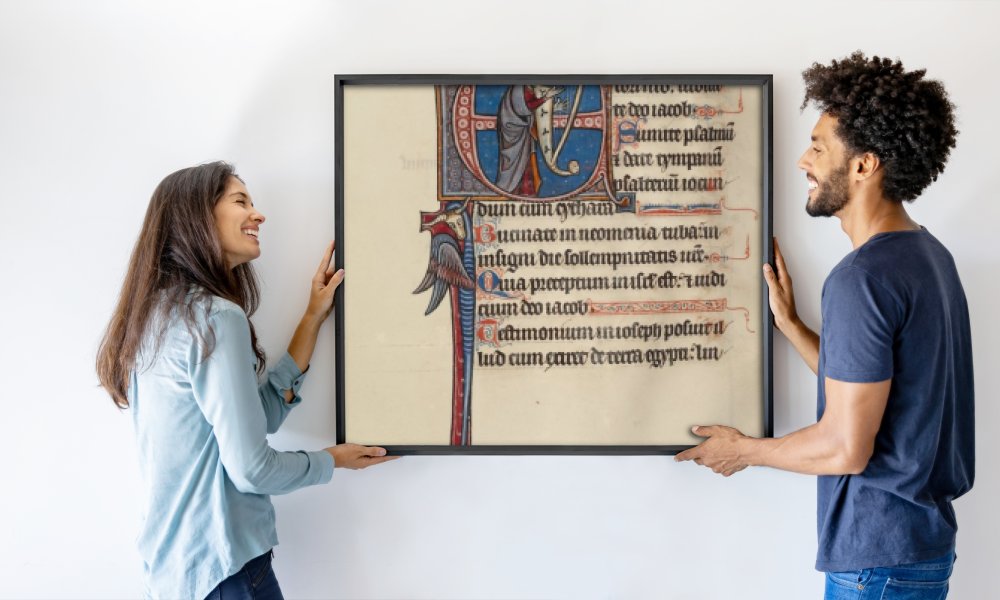 te deo iacob.
Sumite psalmū
⁊ date tympanū
psalteriū iocun
dum cum cythara
Bucinate in neomenia tuba: in
insigni die sollempnitatis ur̄e.
Quia preceptum in isr̄l est: ⁊ iudi
cium deo iacob.
Testimonium in ioseph posuit il
lud cum exiret de terra egypti: lin